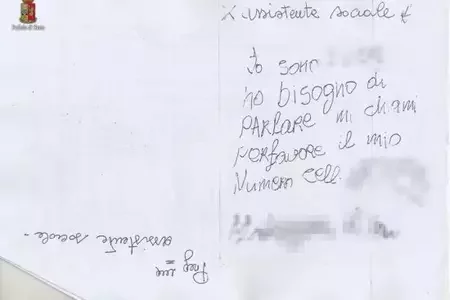 Polizia di Stato
X assistente sociale
Io sono
ho bisogno di
PARLARE mi chiami
PERfavore il mio
Numero cell.
assistente sociale